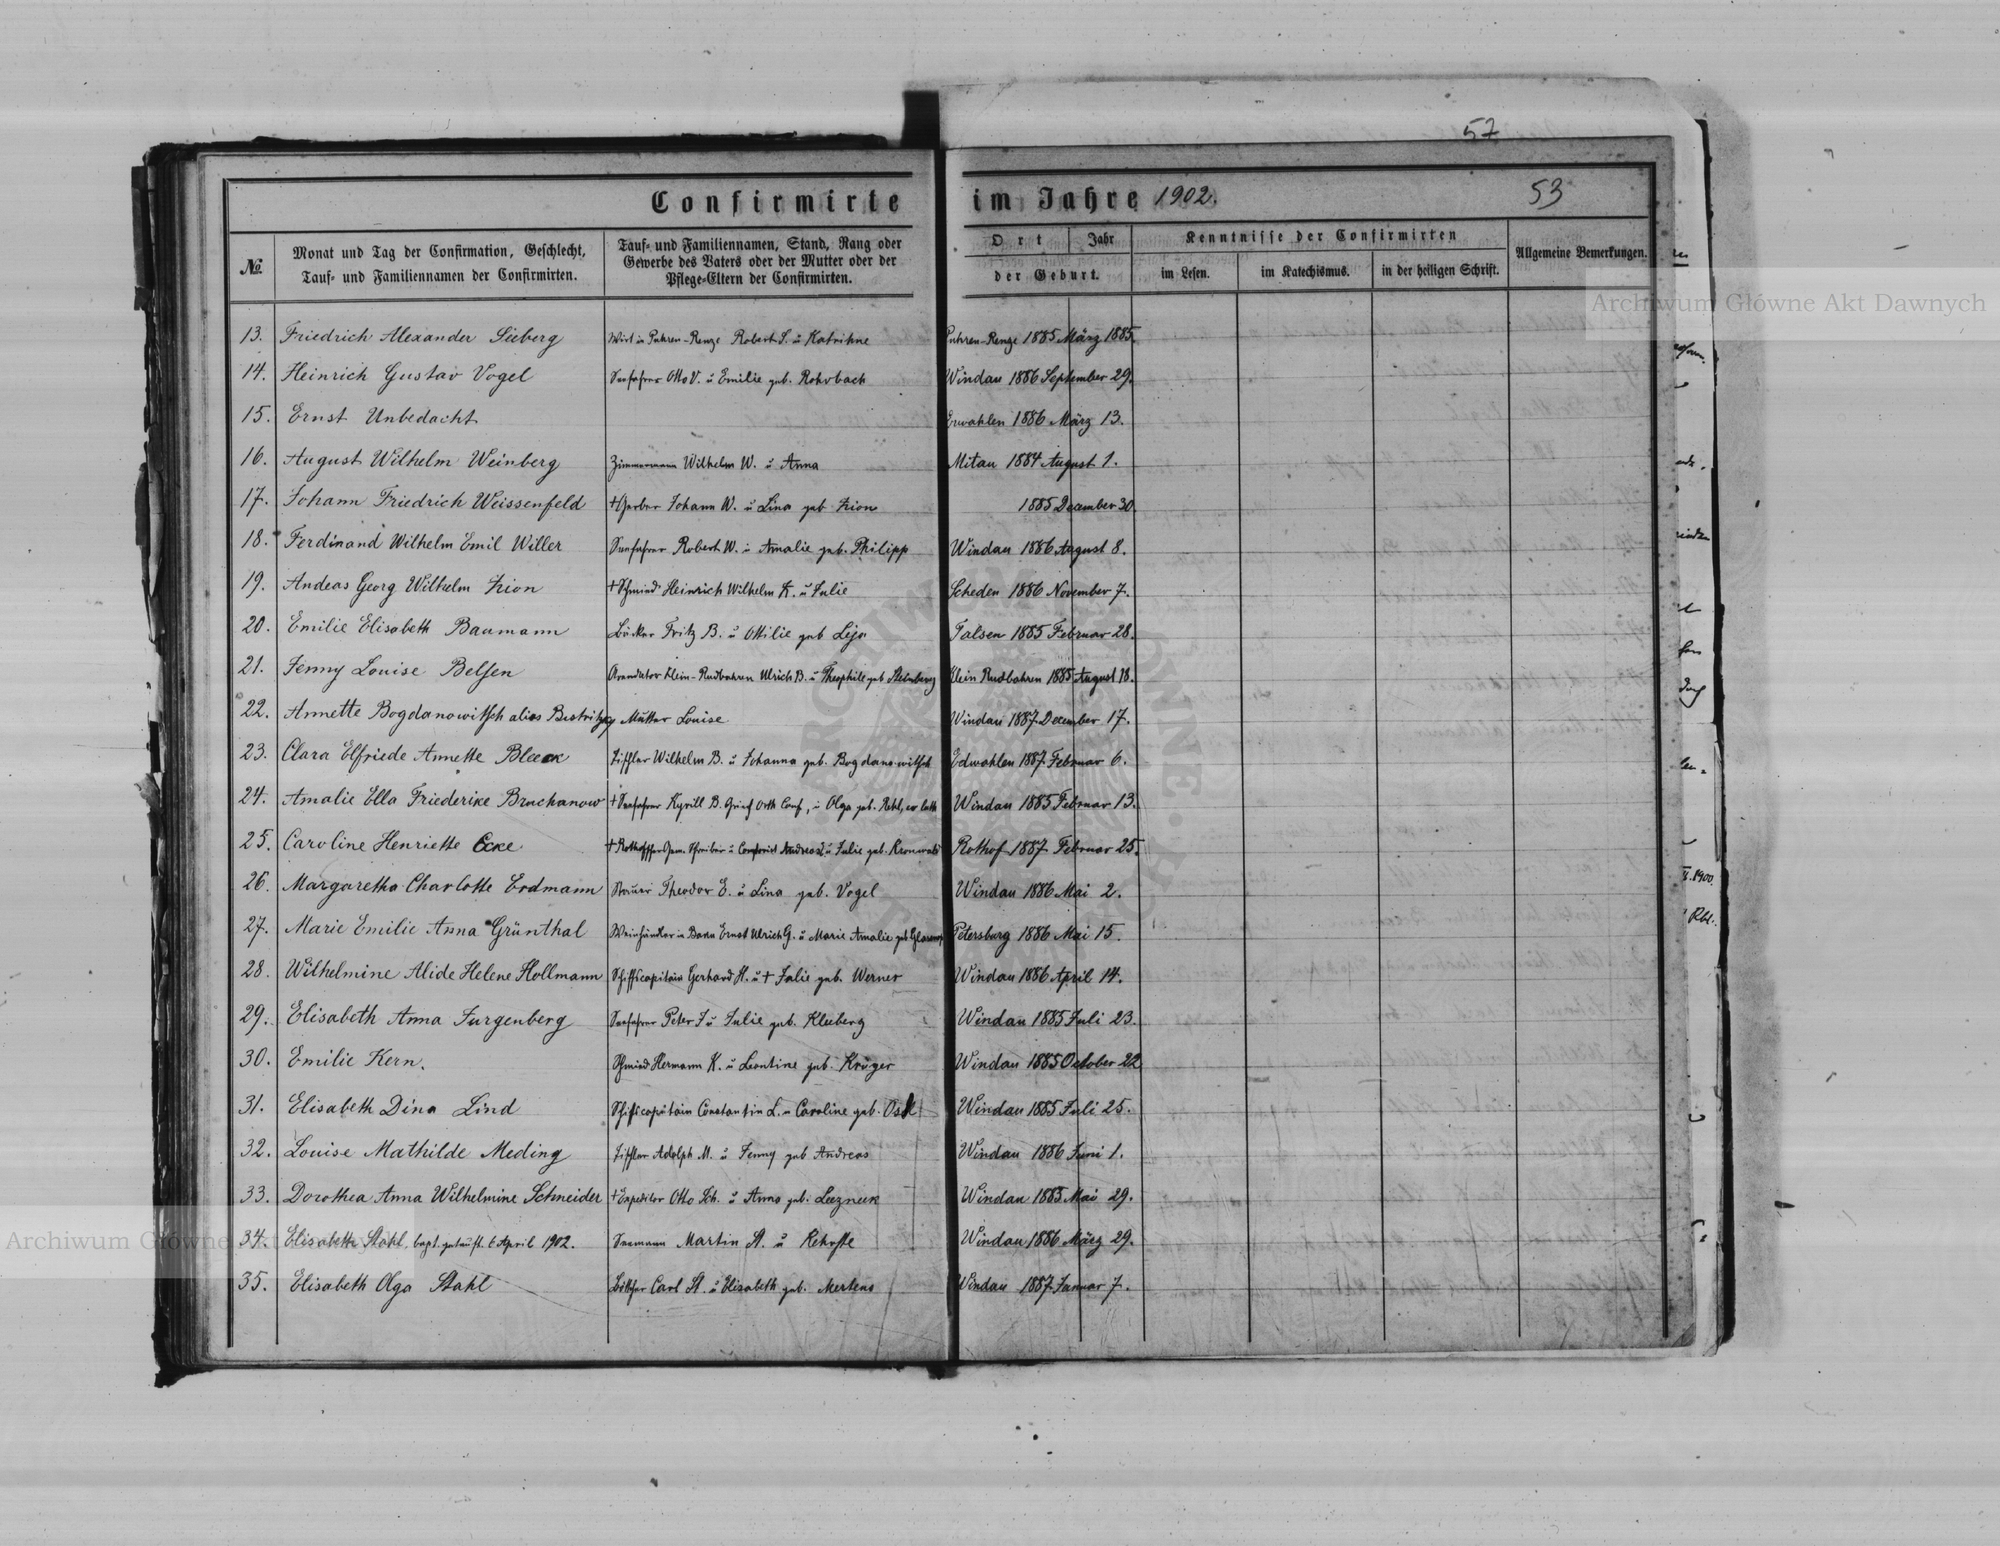 57
Confirmirte im Jahre 1902. 53
№ Monat und Tag der Confirmation, Geschlecht, Tauf- und Familiennamen der Confirmirten. Tauf- und Familiennamen, Stand, Rang oder Gewerbe des Vaters oder der Mutter oder der Pflege-Eltern der Confirmirten. Ort Jahr der Geburt. Kenntnisse der Confirmirten im Lesen. im Katechismus. in der heiligen Schrift. Allgemeine Bemerkungen.
13. Friedrich Alexander Sieberg Wirt in Puhren-Renze Robert S. u Katrihne Puhren-Renze 1885 März 1885.
14. Heinrich Gustav Vogel Seefahrer Otto V. u Emilie geb. Rohrbach Windau 1886 September 29.
15. Ernst Unbedacht Erwahlen 1886 März 13.
16. August Wilhelm Weinberg Zimmermann Wilhelm W. u Anna Mitau 1884 August 1.
17. Johann Friedrich Weissenfeld † Gerber Johann W. u Lina geb Zion 1885 December 30.
18. Ferdinand Wilhelm Emil Willer Seefahrer Robert W. u Amalie geb. Philipp Windau 1886 August 8.
19. Andeas Georg Wilhelm Zion † Schmied Heinrich Wilhelm Z. u Julie Scheden 1886 November 7.
20. Emilie Elisabeth Baumann Bäcker Fritz B. u Ottilie geb Leja Talsen 1885 Februar 28.
21. Jenny Louise Belsen Arendator Klein-Rudbahren Ulrich B. u Theophile geb Klein Rudbahren 1885 August 18.
22. Annette Bogdanowitsch alias Mutter Louise Windau 1887 December 17.
23. Clara Elfriede Annette Bleeck Tischler Wilhelm B. u Johanna geb. Bogdanowitsch Edwahlen 1887 Februar 6.
24. Amalie Ella Friederike Bruchanow † Seefahrer Kyrill B. Griech Orth Conf, u Olga geb. ev luth Windau 1885 Februar 13.
25. Caroline Henriette Ecke † Gem. Schreiber u Andreas E u Julie geb. Kronwald Rothof 1887 Februar 25.
26. Margaretha Charlotte Erdmann Theodor E. u Lina geb. Vogel Windau 1886 Mai 2.
27. Marie Emilie Anna Grünthal Weinhändler in Baku Ernst Ulrich G. u Marie Amalie geb Petersburg 1886 Mai 15.
28. Wilhelmine Alide Helene Hollmann Schiffscapitän Gerhard H. u † Julie geb. Werner Windau 1886 April 14.
29. Elisabeth Anna Jurgenberg Seefahrer Peter J u Julie geb. Kleeberg Windau 1885 Juli 23.
30. Emilie Kern. Schmied Hermann K. u Leontine geb. Krüger Windau 1885 October 22
31. Elisabeth Dina Lind Schiffscapitän Constantin L. u Caroline geb. Windau 1885 Juli 25.
32. Louise Mathilde Meding Tischler Adolph M. u Jenny geb Andreas Windau 1886 Juni 1.
33. Dorothea Anna Wilhelmine Schneider † Expeditor Otto Sch. u Anna geb. Leezneek Windau 1885 Mai 29.
34. Elisabeth Stahl, bapt. getauft. 6 April 1902. Seemann Martin St. u Windau 1886 März 29.
35. Elisabeth Olga Stahl Carl St. u Elisabeth geb. Mertens Windau 1887 Januar 7.
Archiwum Główne Akt Dawnych
Archiwum Główne Akt Dawnych